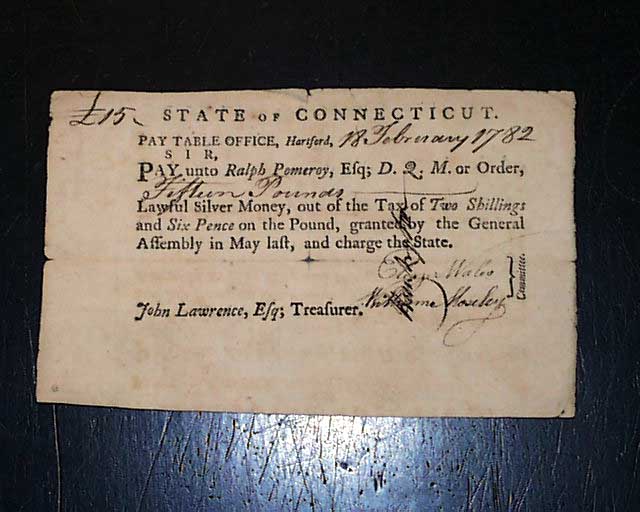 £15. STATE OF CONNECTICUT.
PAY TABLE OFFICE, Hartford, 18 February 1782
SIR,
PAY unto Ralph Pomeroy, Esq; D. Q. M. or Order,
Fifteen Pounds
Lawful Silver Money, out of the Tax of Two Shillings
and Six Pence on the Pound, granted by the General
Aſſembly in May laſt, and charge the State.
Wales
Moseley
Committee.
John Lawrence, Eſq; Treaſurer.